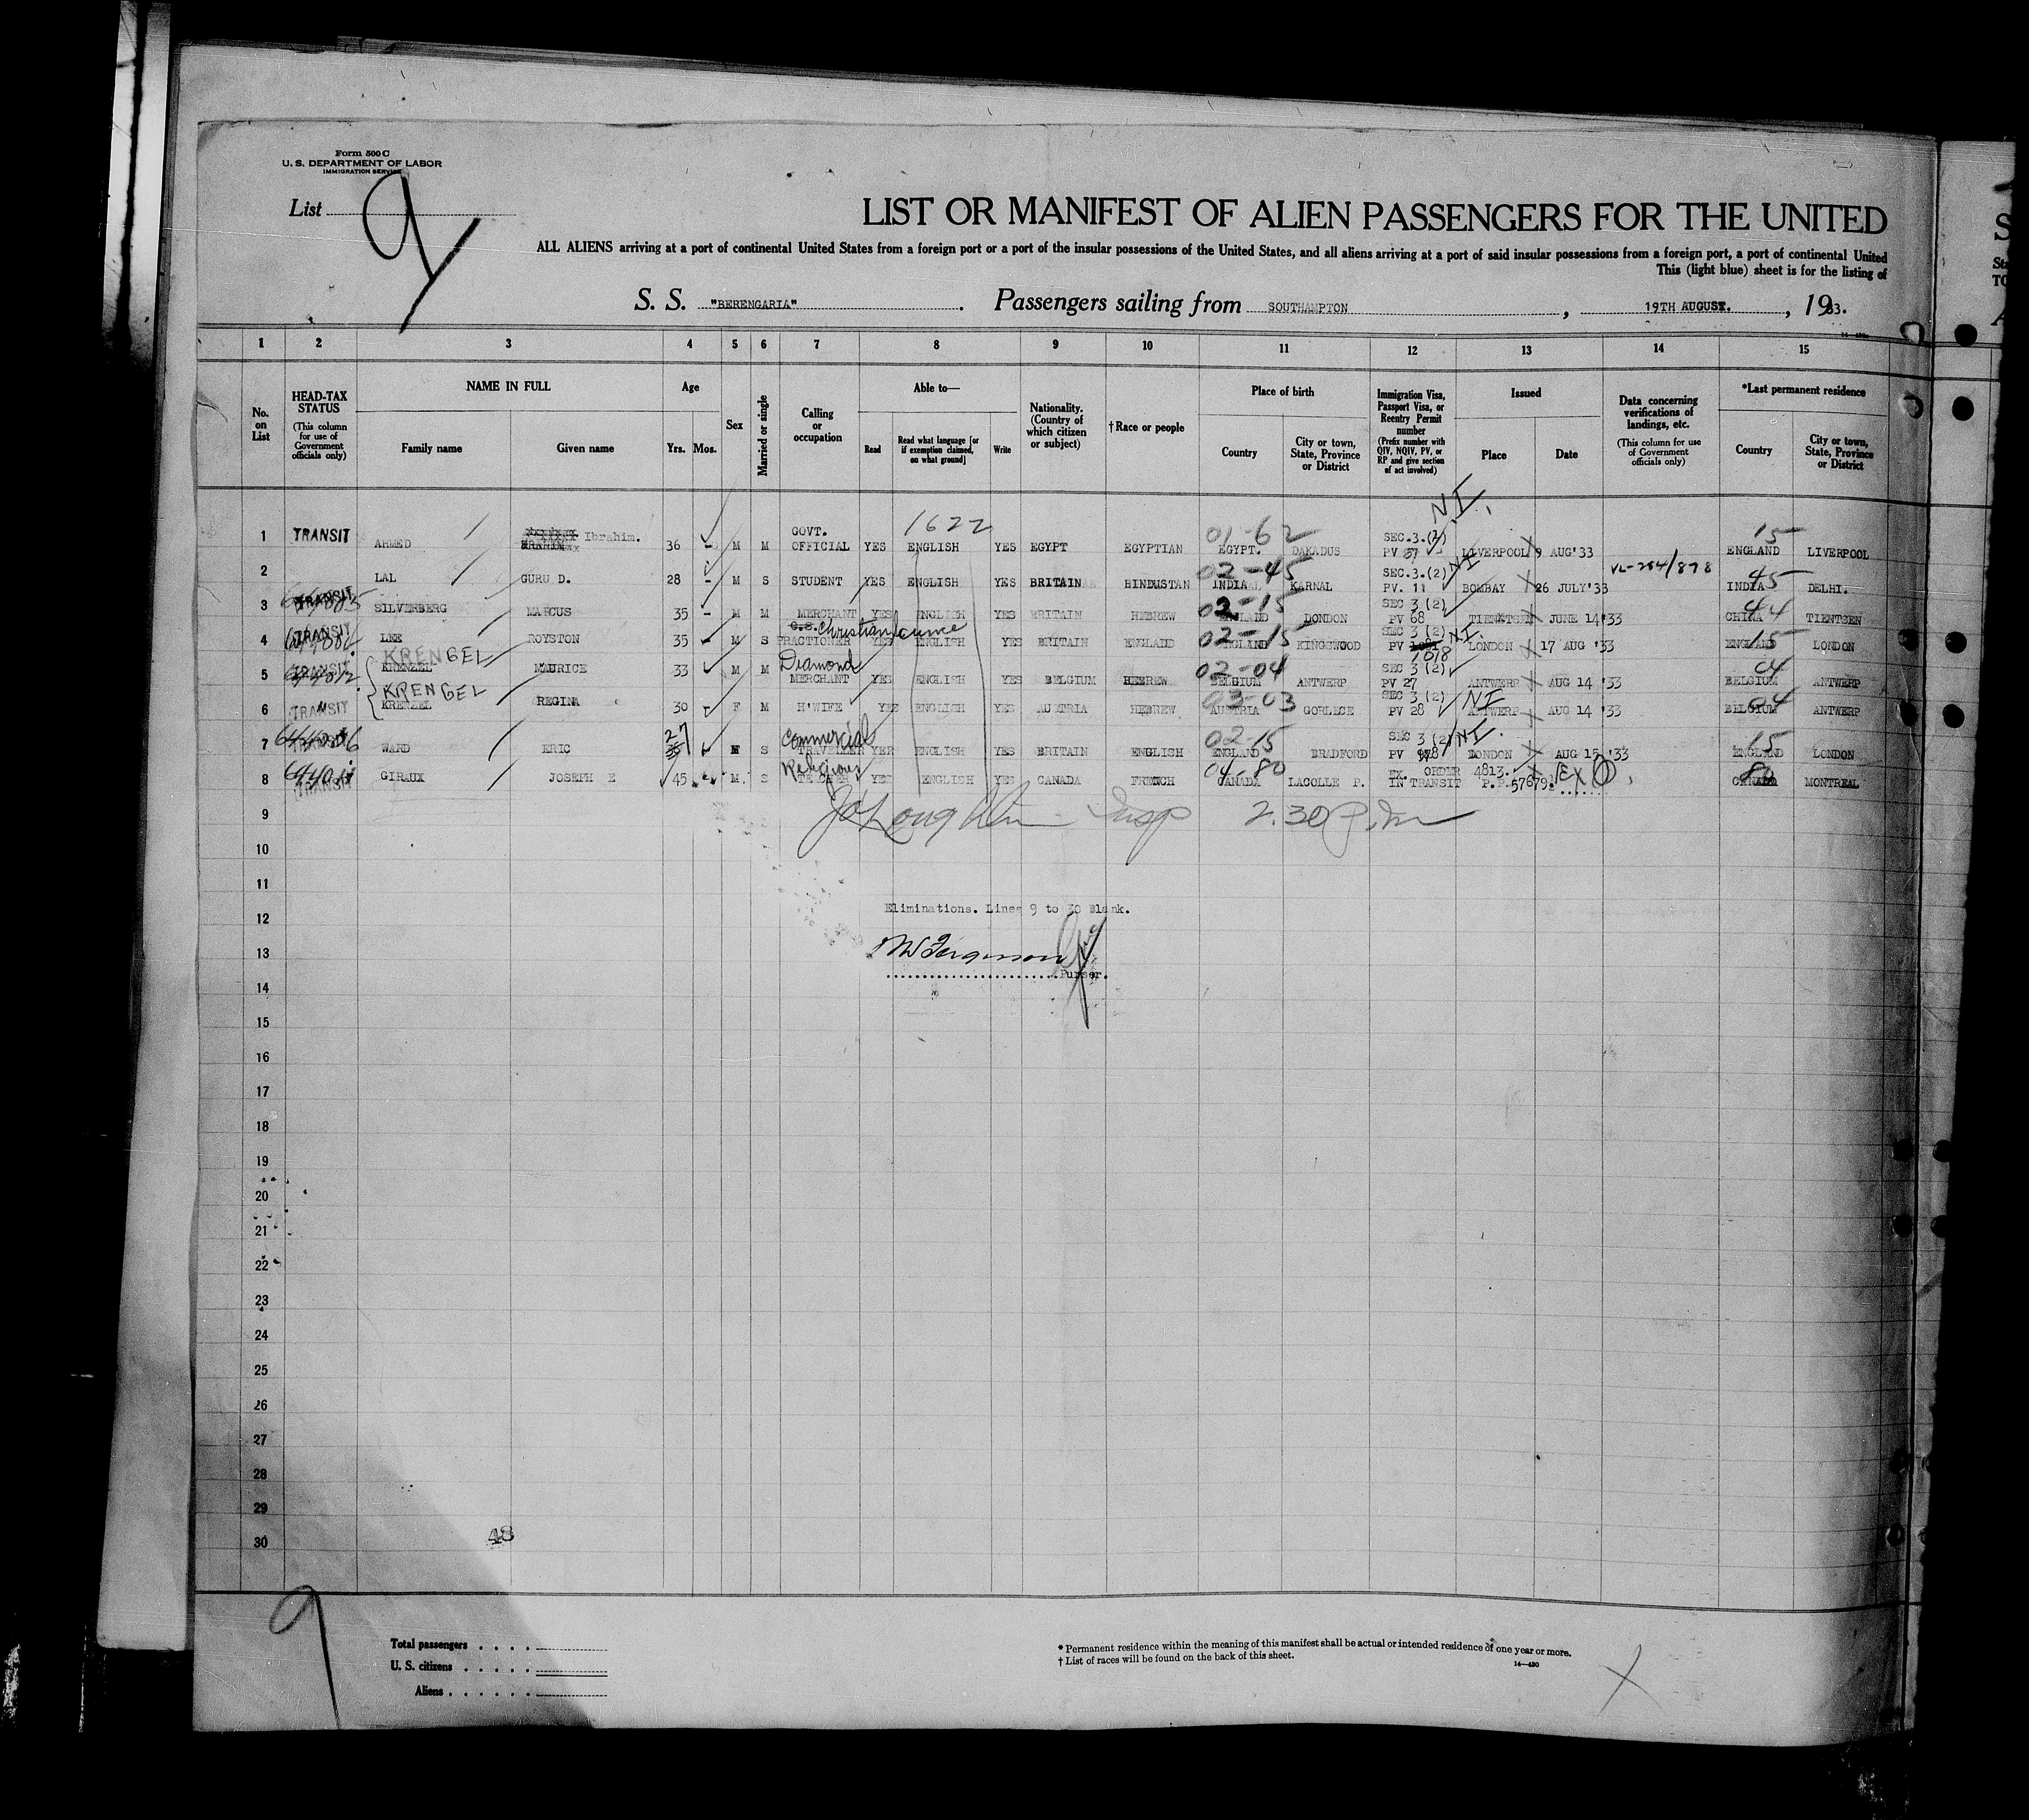 Form 500 C
U. S. DEPARTMENT OF LABOR
IMMIGRATION SERVICE
List 9
LIST OR MANIFEST OF ALIEN PASSENGERS FOR THE UNITED
ALL ALIENS arriving at a port of continental United States from a foreign port or a port of the insular possessions of the United States, and all aliens arriving at a port of said insular possessions from a foreign port, a port of continental United
This (light blue) sheet is for the listing of
S. S. "BERENGARIA". Passengers sailing from SOUTHAMPTON, 19TH AUGUST., 1933.
1 2 3 4 5 6 7 8 9 10 11 12 13 14 15
No. on List
HEAD-TAX STATUS (This column for use of Government officials only)
NAME IN FULL
Family name
Given name
Age
Yrs. Mos.
Sex
Married or single
Calling or occupation
Able to—
Read
Read what language [or if exemption claimed, on what ground]
Write
Nationality. (Country of which citizen or subject)
†Race or people
Place of birth
Country
City or town, State, Province or District
Immigration Visa, Passport Visa, or Reentry Permit number (Prefix number with QIV, NQIV, PV, or RP and give section of act involved)
Issued
Place
Date
Data concerning verifications of landings, etc. (This column for use of Government officials only)
*Last permanent residence
Country
City or town, State, Province or District
N.I.
1622 01-62 15
1 TRANSIT ARMED Ibrahim. 36 - M M GOVT. OFFICIAL YES ENGLISH YES EGYPT EGYPTIAN EGYPT. DAKADUS SEC.3.(2) PV 37 LIVERPOOL 9 AUG'33 ENGLAND LIVERPOOL
02-45 NI VL-254/878 45
2 LAL GURU D. 28 - M S STUDENT YES ENGLISH YES BRITAIN HINDUSTAN INDIA KARNAL SEC.3.(2) PV. 11 BOMBAY 26 JULY'33 INDIA DELHI.
02-15 44
3 TRANSIT SILVERBERG MARCUS 35 - M M MERCHANT YES ENGLISH YES BRITAIN HEBREW ENGLAND LONDON SEC 3 (2) PV 68 TIENTSIN JUNE 14'33 CHINA TIENTSEN
C.S. Christian Science 02-15 N.I. 15
4 TRANSIT LEE ROYSTON 35 - M S PRACTIONER YES ENGLISH YES BRITAIN ENGLAND ENGLAND KINGSWOOD SEC 3 (2) PV 1018 LONDON 17 AUG '33 ENGLAND LONDON
KRENGEL Diamond 02-04 04
5 TRANSIT KRENZEL MAURICE 33 M M MERCHANT YES ENGLISH YES BELGIUM HEBREW BELGIUM ANTWERP SEC 3 (2) PV 27 ANTWERP AUG 14 '33 BELGIUM ANTWERP
KRENGEL 03-03 NI 04
6 TRANSIT KRENZEL REGINA 30 - F M H'WIFE YES ENGLISH YES AUSTRIA HEBREW AUSTRIA GORLECE SEC 3 (2) PV 28 ANTWERP AUG 14 '33 BELGIUM ANTWERP
27 Commercial 02-15 N.I. 15
7 WARD ERIC M S TRAVELLER YES ENGLISH YES BRITAIN ENGLISH ENGLAND BRADFORD SEC 3 (2) PV LONDON AUG 15 '33 ENGLAND LONDON
Religious 04-80 80
8 TRANSIT GIROUX JOSEPH E 45 M. S TEACHER YES ENGLISH YES CANADA FRENCH CANADA LACOLLE P. EX. ORDER 4813. IN TRANSIT P.P.57679. EX CANADA MONTREAL
9 Insp 2.30 P.m
10
11
12 Eliminations. Lines 9 to 30 Blank.
13 Ferguson
Purser.
14
15
16
17
18
19
20
21
22
23
24
25
26
27
28
29
30
48
9
Total passengers
U. S. citizens
Aliens
* Permanent residence within the meaning of this manifest shall be actual or intended residence of one year or more.
† List of races will be found on the back of this sheet.
14—430